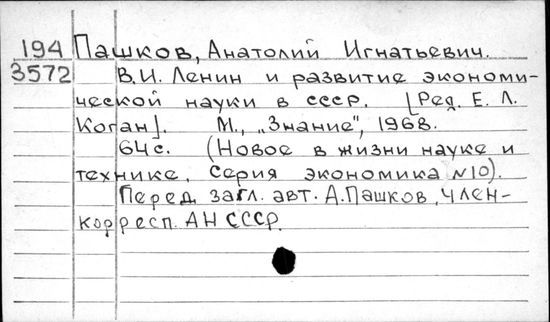 194 Пашков, Анатолий Игнатьевич.
3572 В.И. Ленин и развитие экономи-
ческой науки в СССР. [Ред. Е. Л.
Коган]. М., „Знание", 1968.
64с. (Новое в жизни науке и
технике. Серия экономика №10).
Перед загл. авт. А.Пашков, член-
корресп. АН СССР.